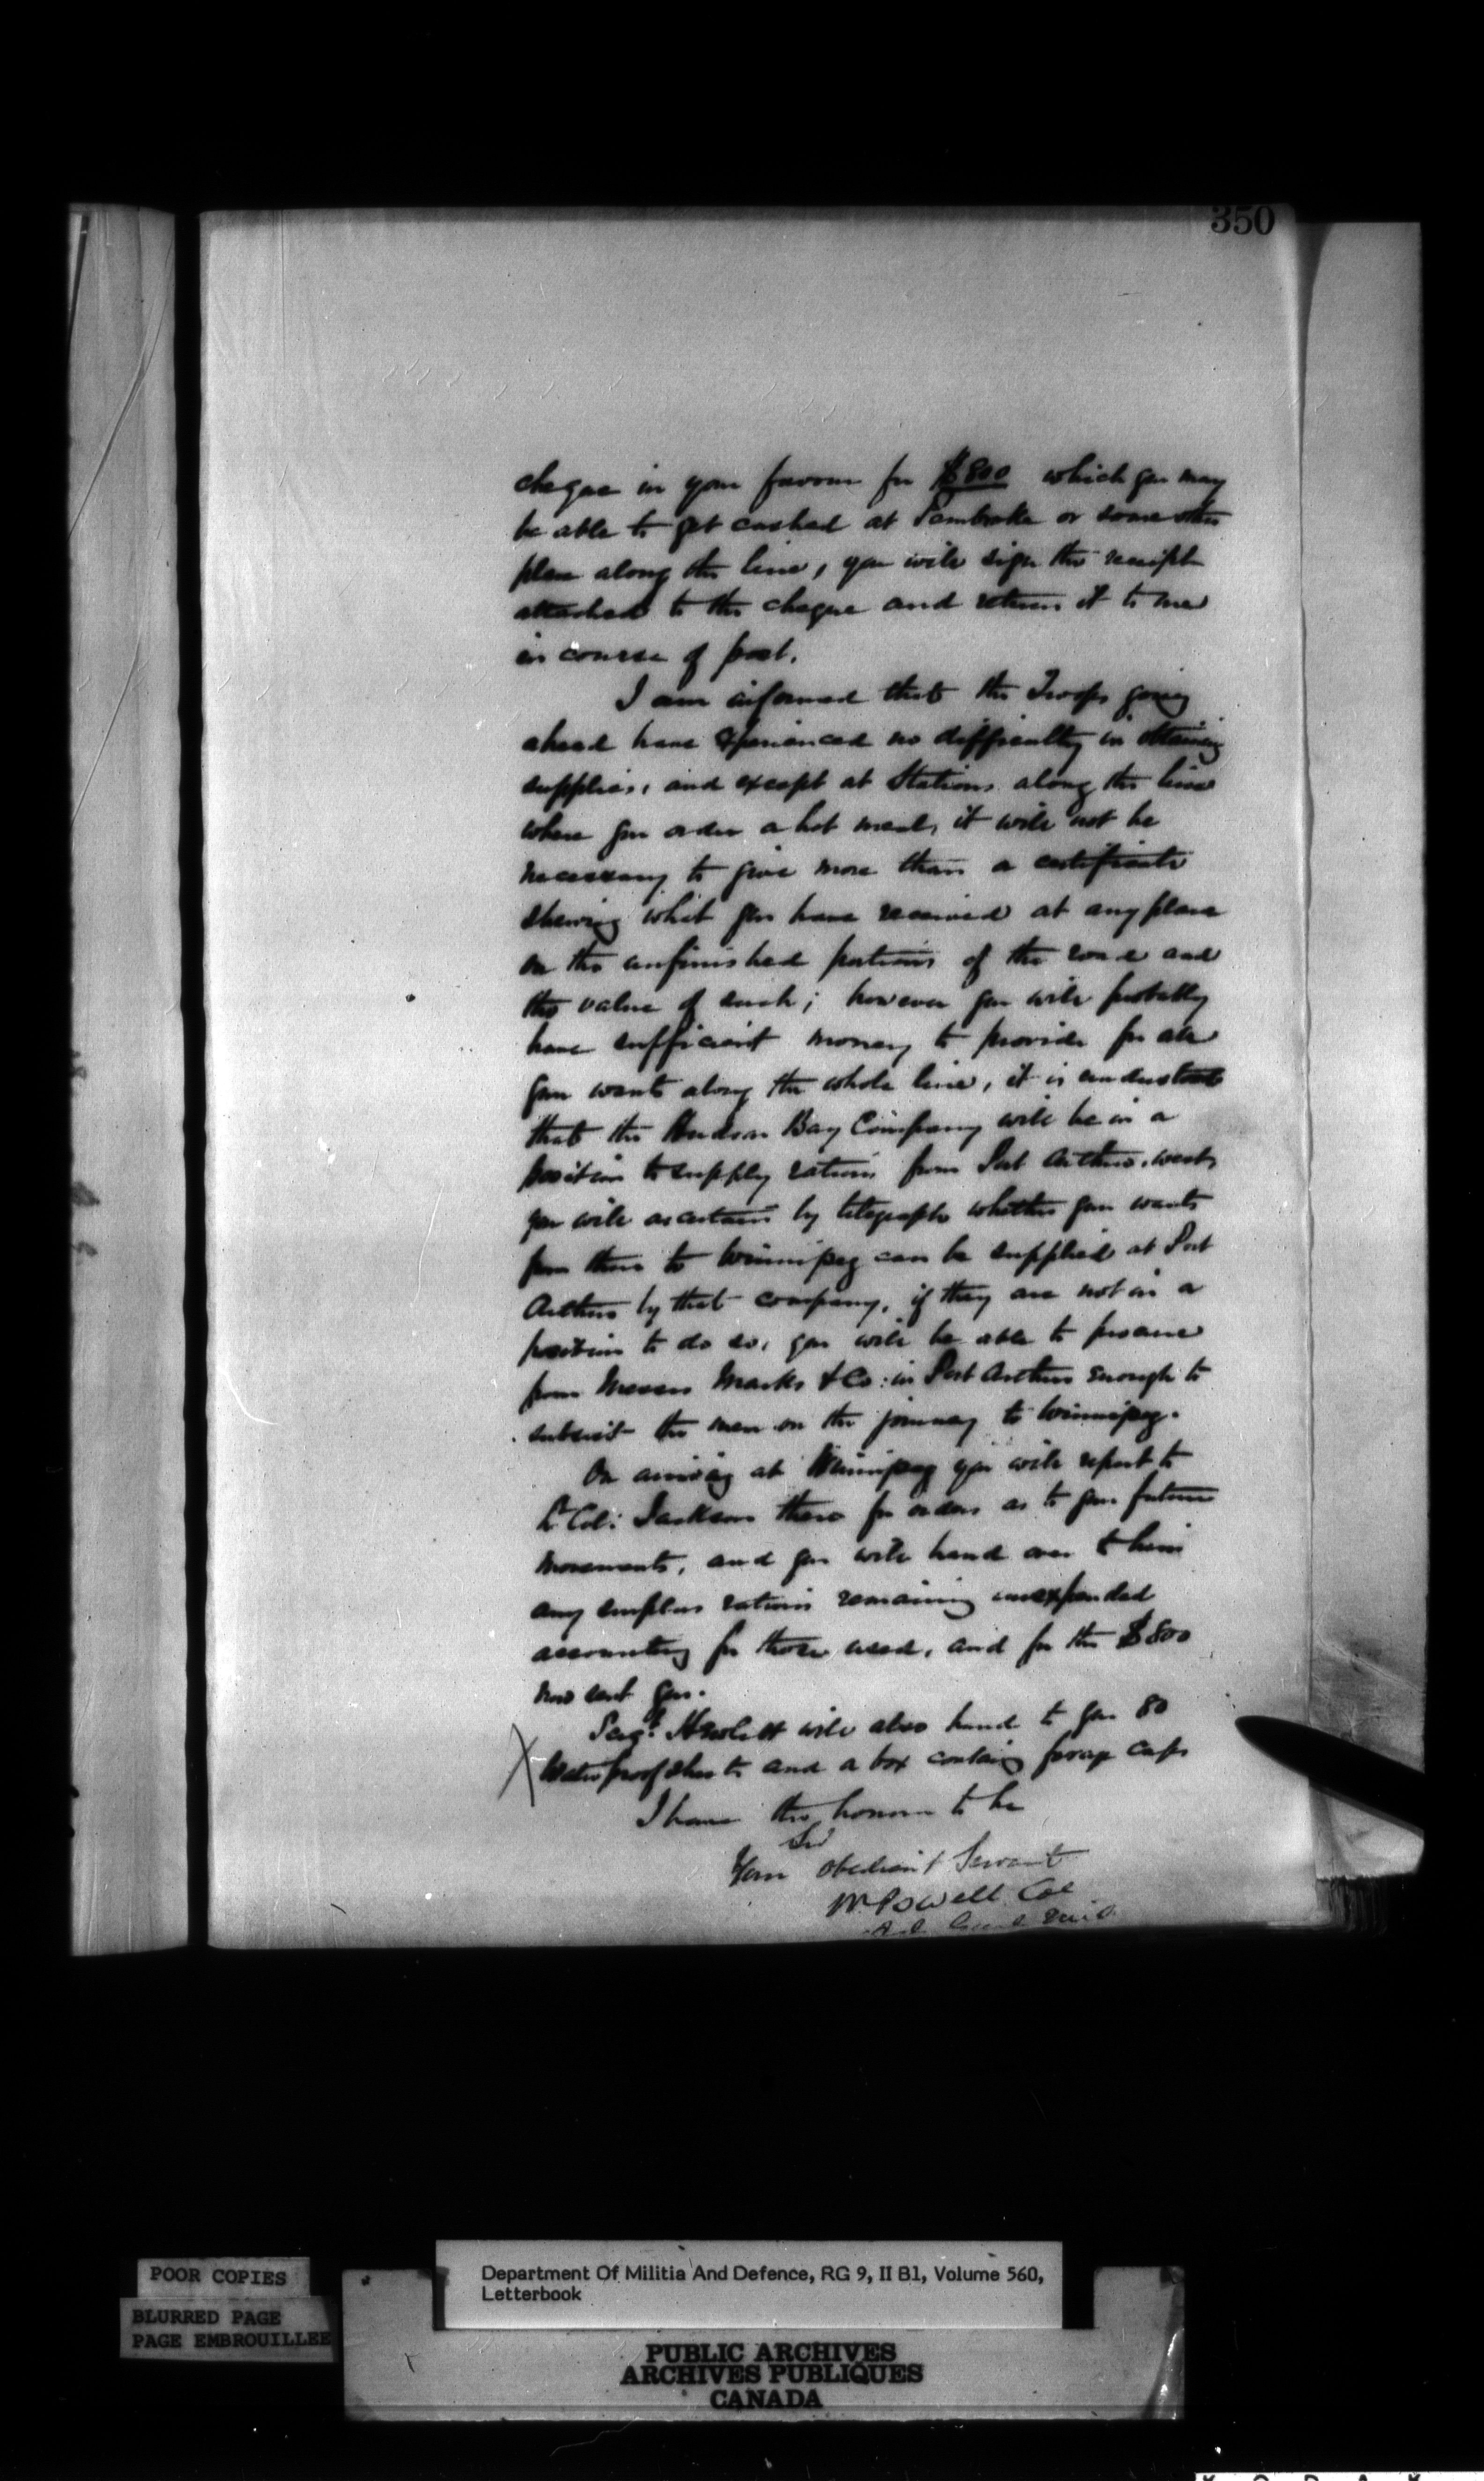 350
cheque in your favour for $800 which you may
be able to get cashed at Pembroke or some other
place along the line, you will sign the receipt
attached to the cheque and return it to me
in course of post.
I am informed that the Troops going
ahead have experienced no difficulty in obtaining
supplies, and except at Stations along the line
where you order a hot meal, it will not be
necessary to give more than a certificate
shewing what you have received at any place
on the unfinished portions of the road and
the value of such; however you will probably
have sufficient money to provide for all
your wants along the whole line, it is understood
that the Hudson Bay Company will be in a
position to supply rations from Port Arthur, west,
you will ascertain by telegraph whether your wants
from there to Winnipeg can be supplied at Port
Arthur by that company, if they are not in a
position to do so, you will be able to procure
from Messrs Marks & Co: in Port Arthur enough to
subsist the men on the journey to Winnipeg.
On arriving at Winnipeg you will report to
Lt Col: Jackson there for orders as to your future
movements, and you will hand over to him
any surplus rations remaining unexpended
accounting for those used, and for the $800
now sent you.
Sergt will also hand to you 80
Waterproof sheets and a box containg forage caps
I have the honour to be
Sir
Your obedient Servant
W Powell Col
POOR COPIES
BLURRED PAGE
PAGE EMBROUILLEE
Department Of Militia And Defence, RG 9, II B1, Volume 560,
Letterbook
PUBLIC ARCHIVES
ARCHIVES PUBLIQUES
CANADA